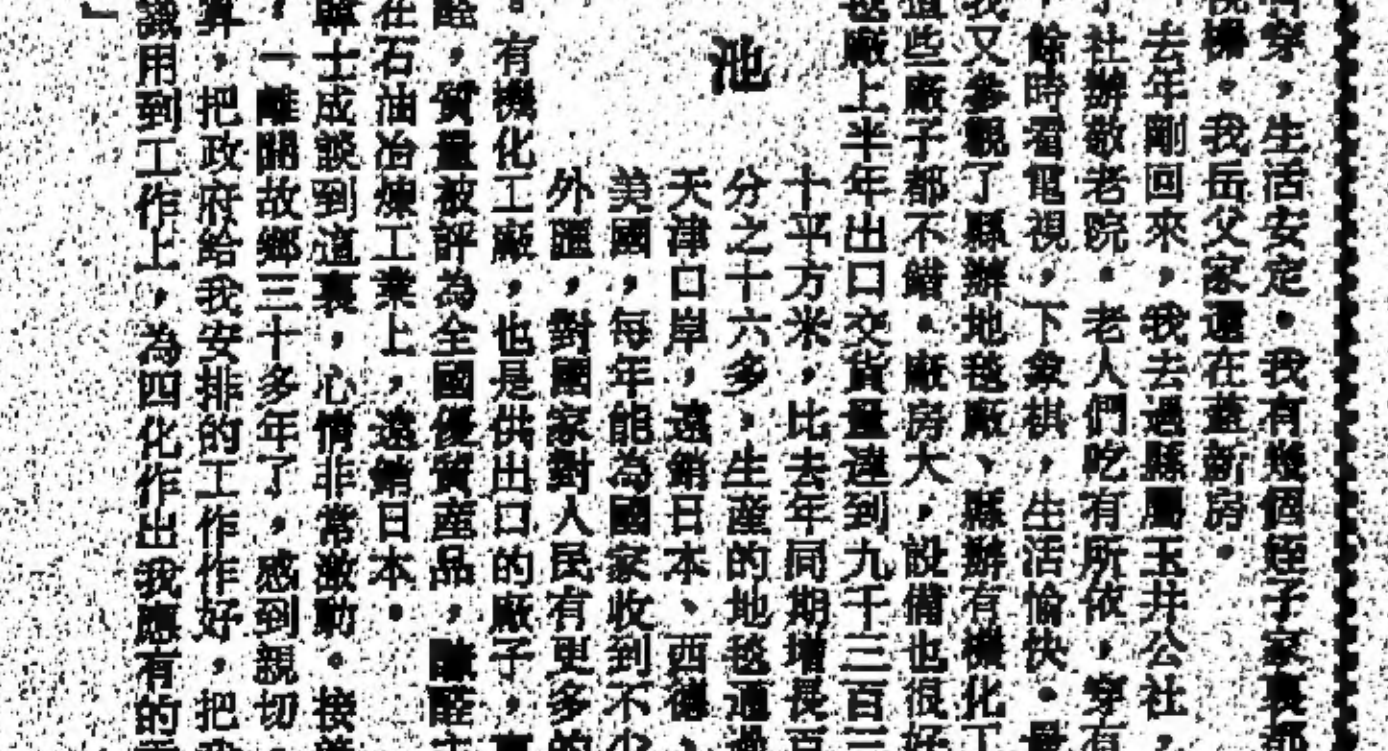 有穿，生活安定。我有幾個姪子家裏都
視機。我岳父家還在蓋新房。
去年剛回來，我去過縣屬玉井公社，
社辦敬老院。老人們吃有所依，穿有
餘時看電視，下象棋，生活愉快。
我又參觀了縣辦地毯廠、縣辦有機化工
這些廠子都不錯。廠房大，設備也很好
毯廠上半年出口交貨量達到九千三百三
十平方米，比去年同期增長百
分之十六多，生産的地毯通過
天津口岸，遠銷日本、西德、
美國，每年能為國家收到不少
外匯，對國家對人民有更多的
池
有機化工廠，也是供出口的廠子，
醛，質量被評為全國優質産品，糠醛
在石油冶煉工業上，遠銷日本。
士成談到這裏，心情非常激動。接
，一離開故鄉三十多年了，感到親切
算，把政府給我安排的工作作好，把
識用到工作上，為四化作出我應有的
』